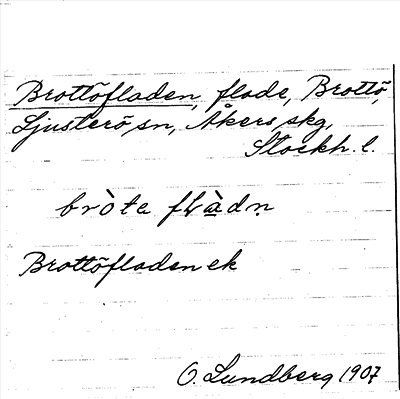 Brottöfladen, flade, Brottö,
Ljusterö sn, Åkers skg,
Stockh. l.
bròta flàdn̥
Brottöfladen ek
O. Lundberg 1907